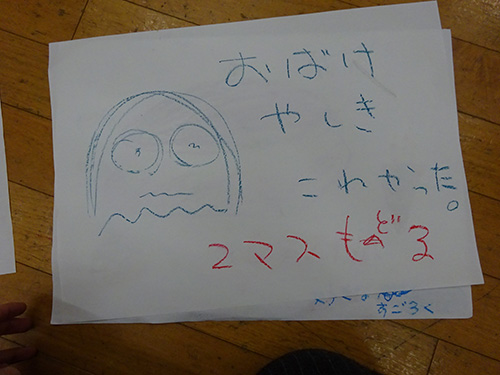 おばけ
やしき
こわかった。
2マスもどる
すごろく